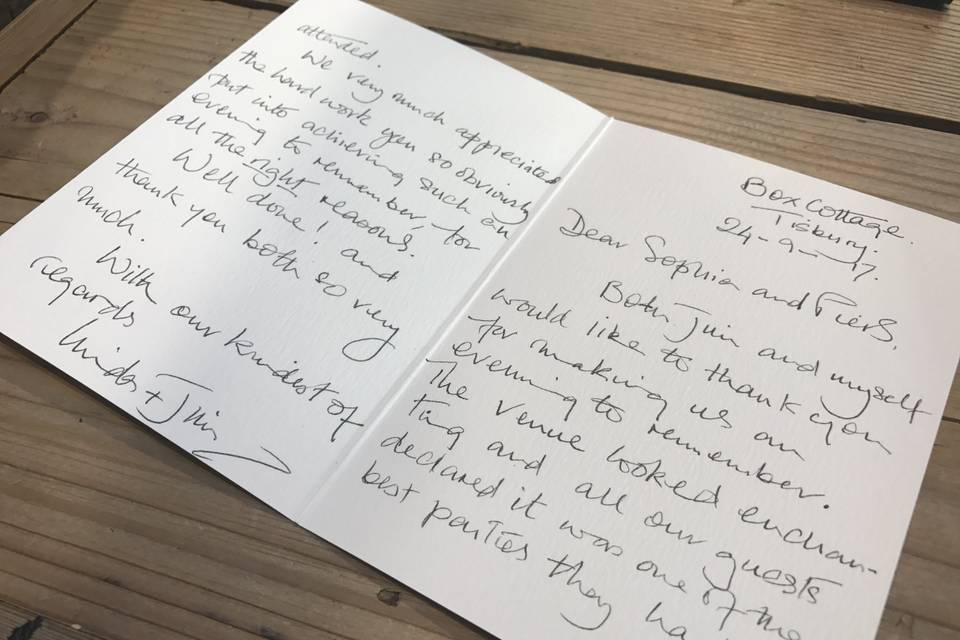 Box Cottage.
Tisbury.
24-9-17.
Dear Sophia and Piers,
Both Jim and myself
would like to thank you
for making us an
evening to remember.
The venue looked enchan-
ting and all our guests
declared it was one of the
best parties they
attended.
We very much appreciated
the hard work you so obviously
put into achieving such an
evening to remember, for
all the right reasons.
Well done! and
thank you both so very
much.
With our kindest of
regards
Linda + Jim